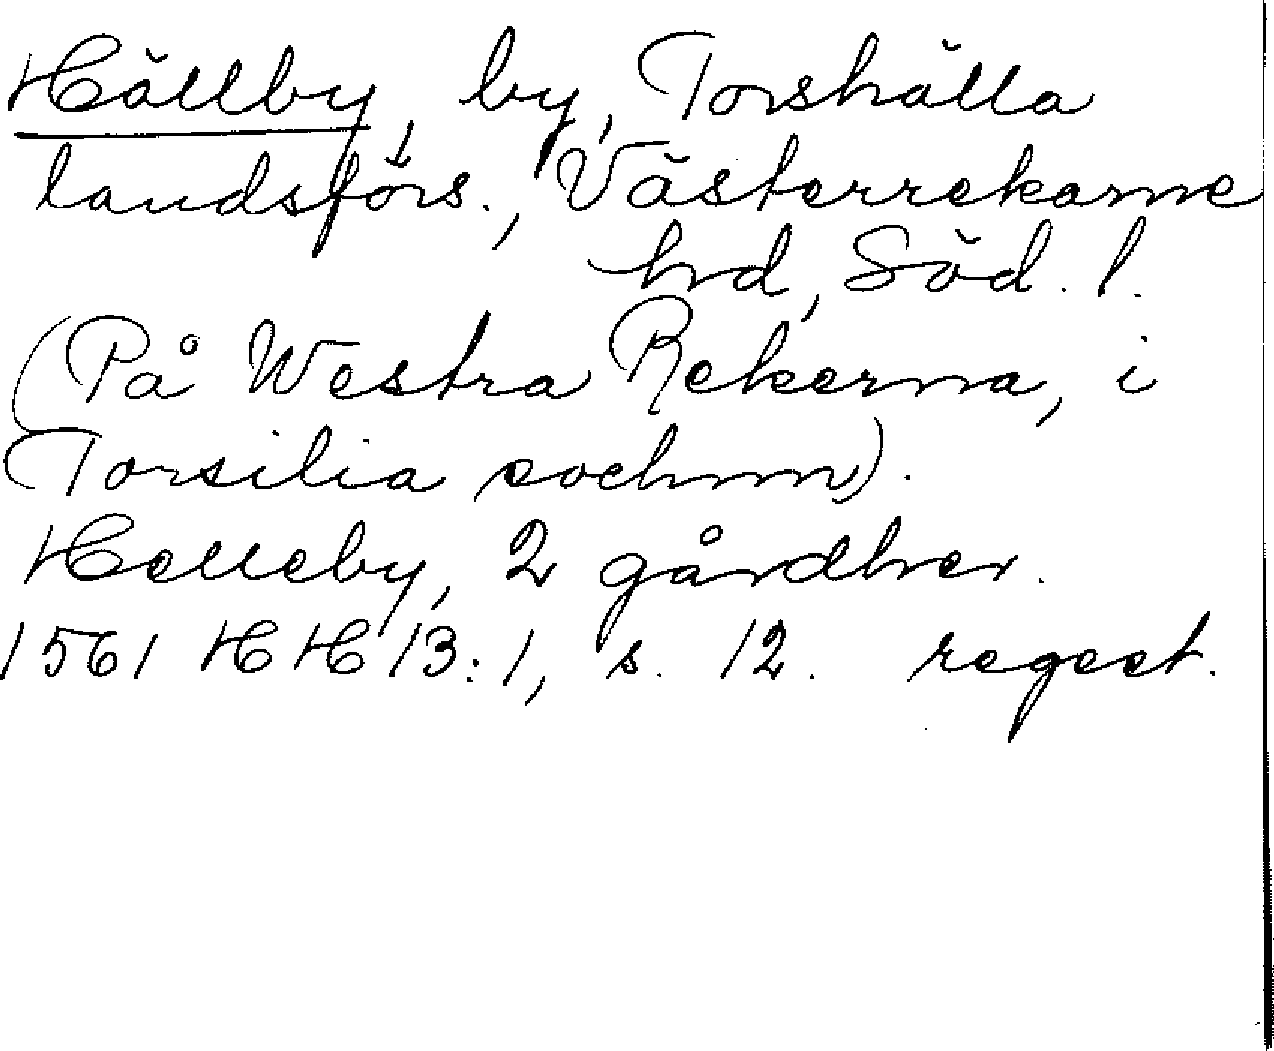 Hällby, by, Torshälla
landsförs., Västerrekarne
hd, Söd. l.
(På Westra Rekerna, i
Torsilia sochnn).
Helleby, 2 gårdher.
1561 HH 13:1, s. 12. regest.